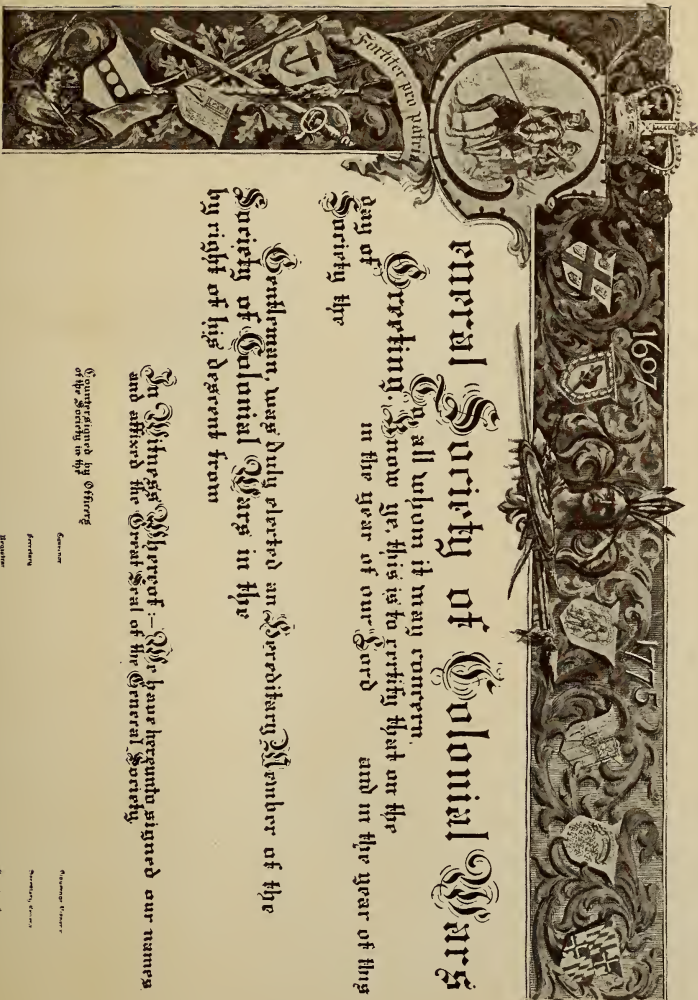 Fortiter pro patria
1607
1775
eneral Society of Colonial Wars
To all whom it may concern,
Greeting. Know ye, this is to certify that on the
day of in the year of our Lord and in the year of this
Society the
Gentleman, was duly elected an Hereditary Member of the
Society of Colonial Wars in the
by right of his descent from
In Witness Whereof:—We have hereunto signed our names
and affixed the Great Seal of the General Society.
Countersigned by Officers
of the Society in the
Governor
Secretary
Registrar